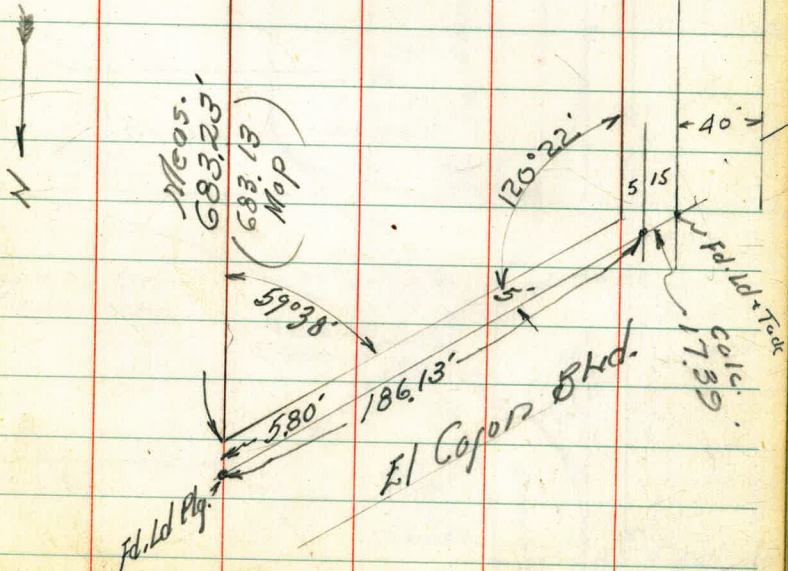 N
Meas.
683.23'
(683.13
Map)
59°38'
120°22'
5 15
40'
5-
Fd. Ld & Tack
Calc.
17.39
186.13'
5.80'
El Cajon Blvd.
Fd. Ld Plg.